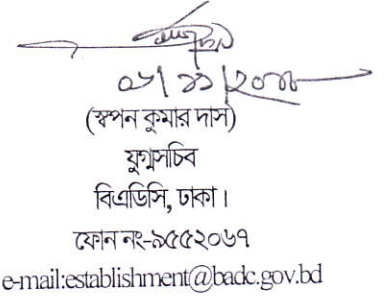 (স্বপন কুমার দাস)
যুগ্মসচিব
বিএডিসি, ঢাকা।
ফোন নং-৯৫৫২০৬৭
e-mail:establishment@badc.gov.bd